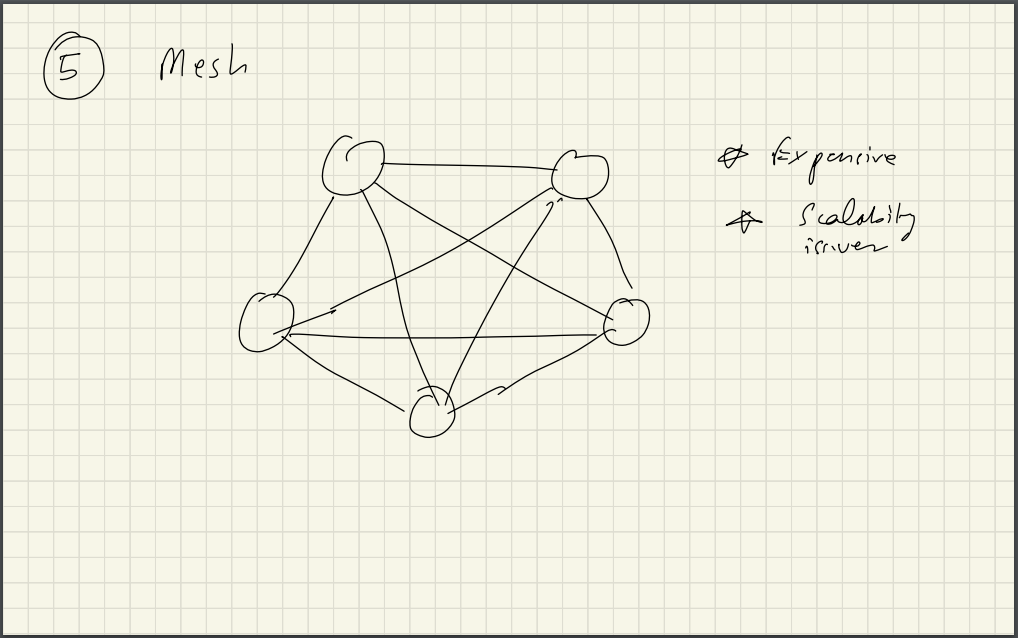 5 Mesh
* Expensive
* Scalability
issues